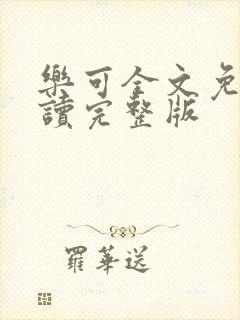 樂可全文免
讀完整版
羅華送